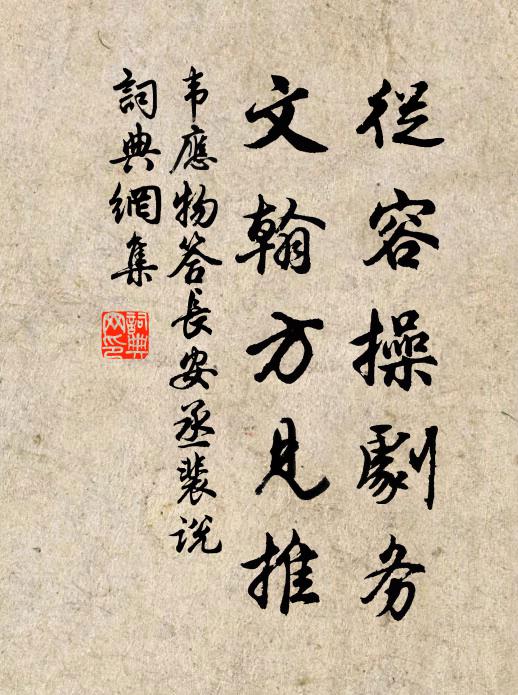 從容操劇务
文翰方見推
韦應物答長安丞裴说
詞典網集
詞典网印